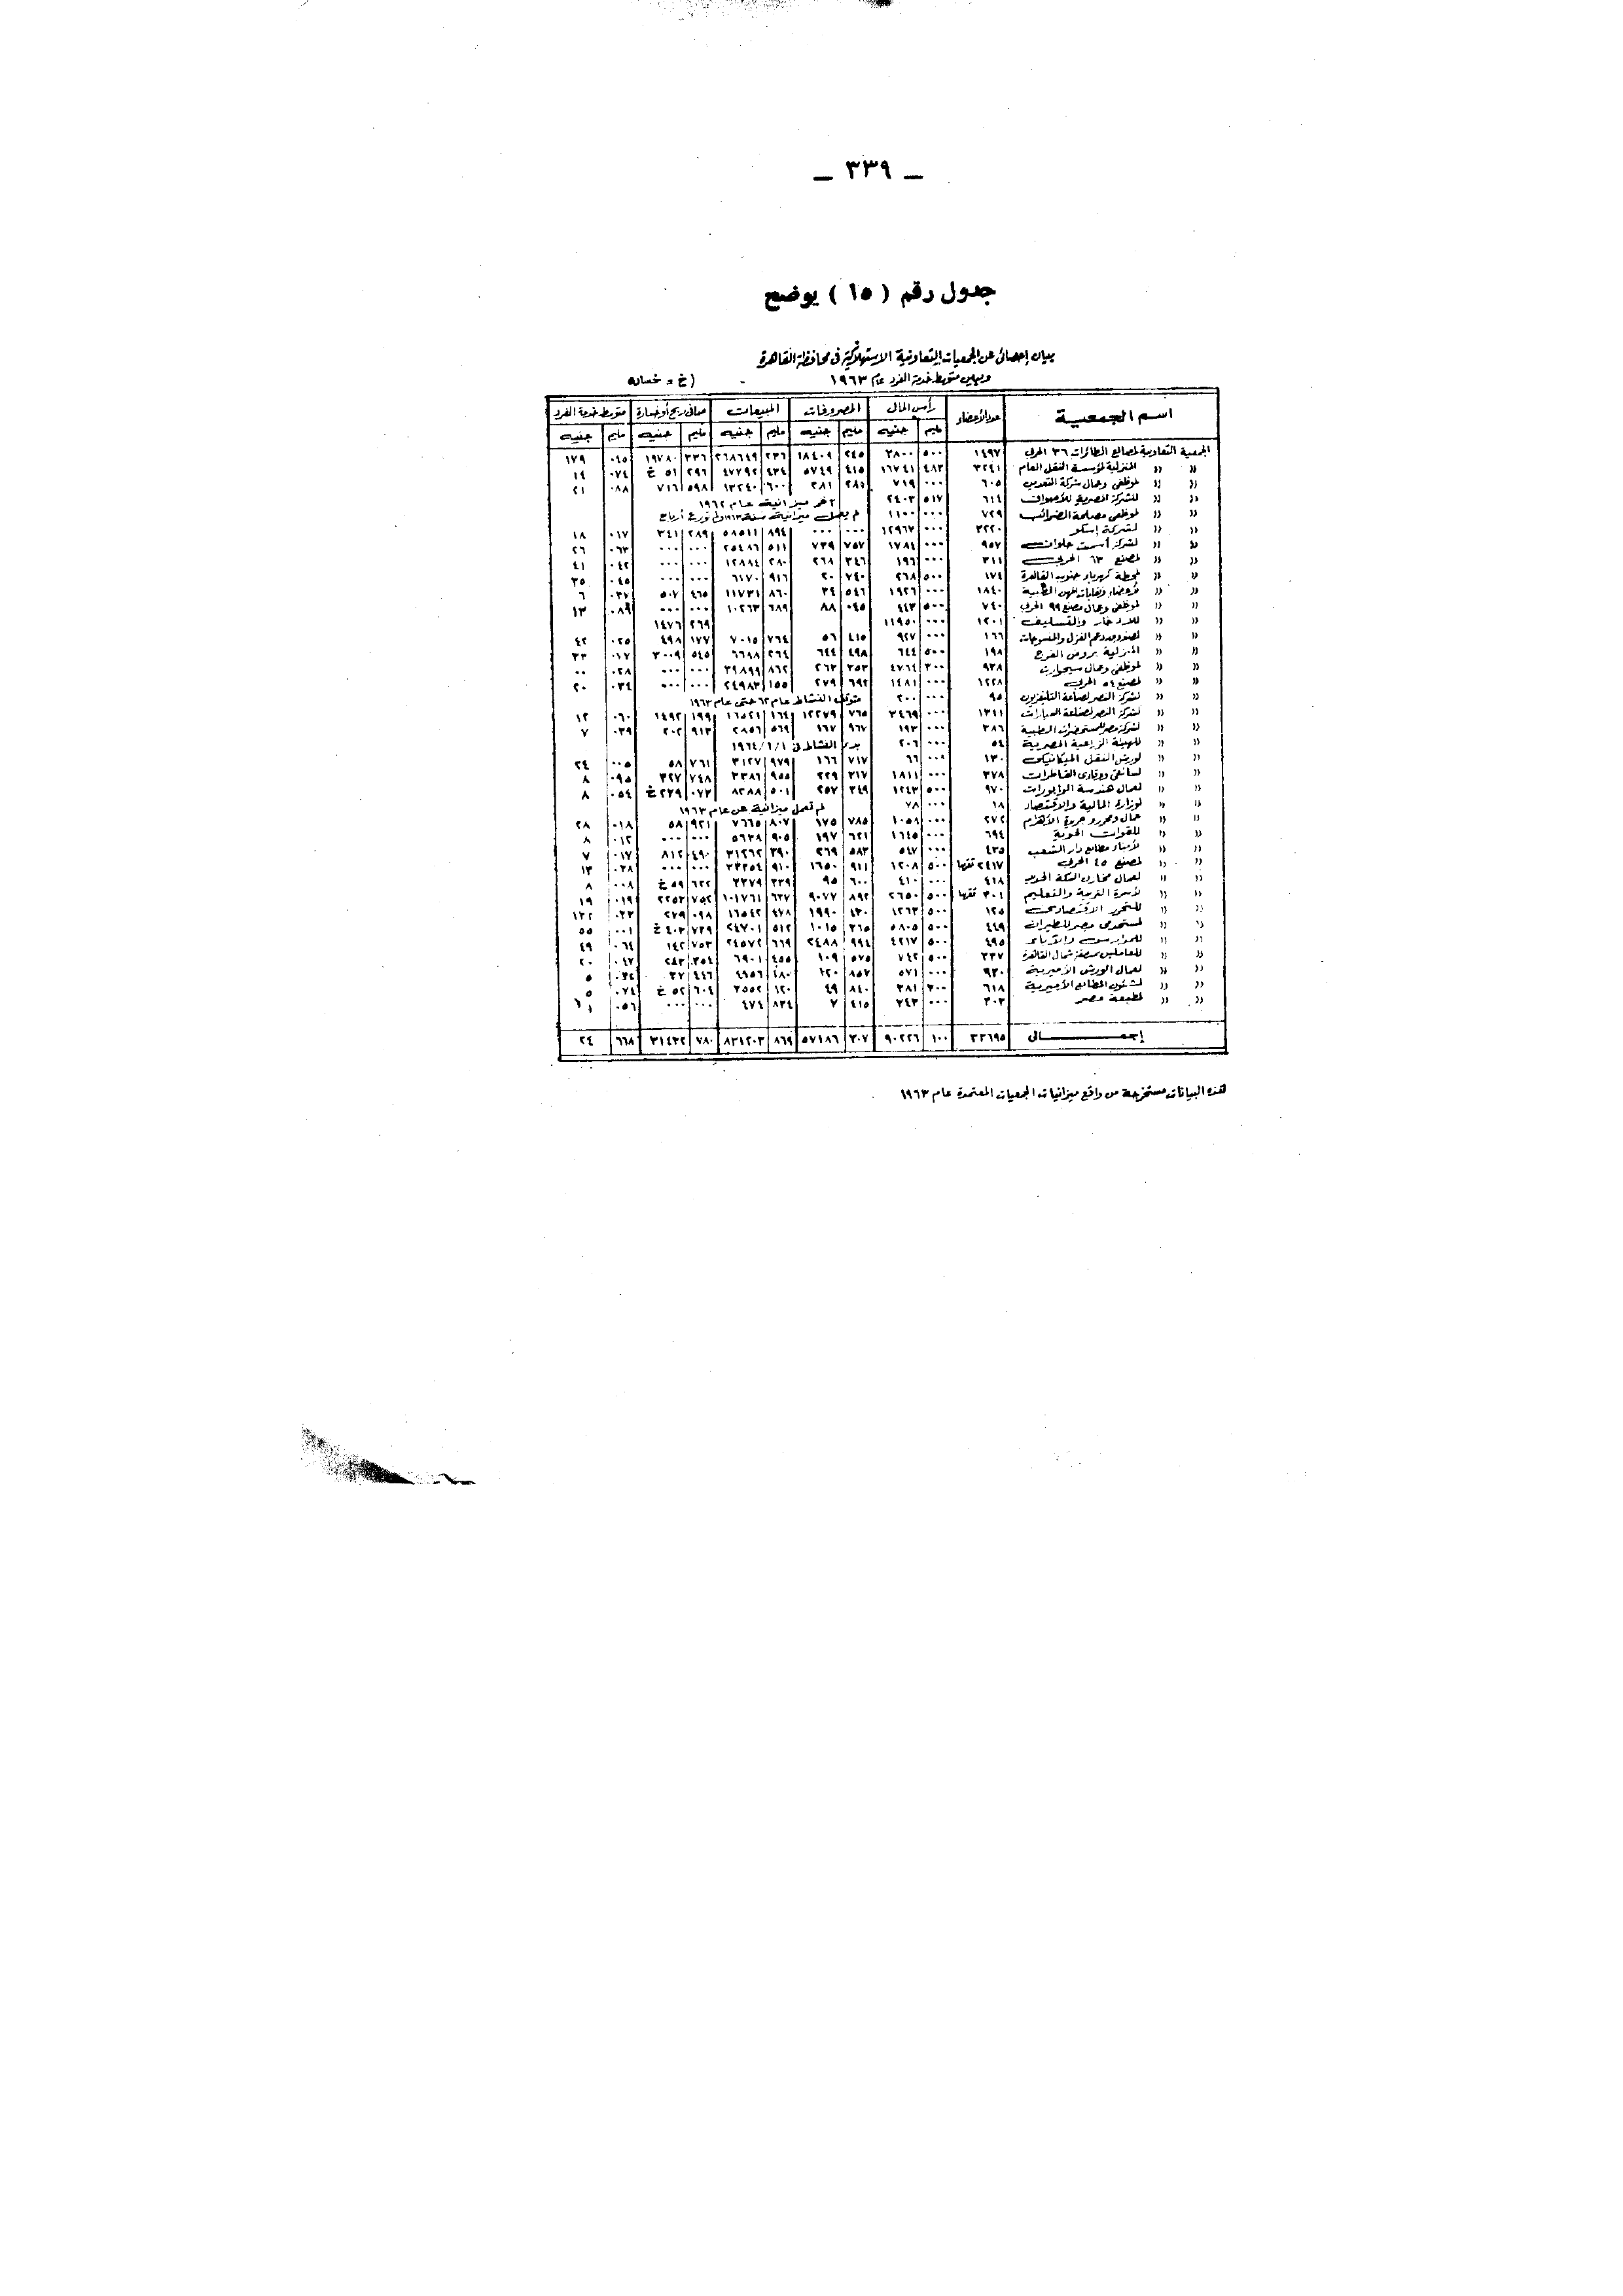 — ٣٣٩ —
جدول رقم ( ١٥ ) يوضح
بيان إحصائى عن الجمعيات التعاونية الاستهلاكية فى محافظة القاهرة
ويبين متوسط خدمة الفرد عام ١٩٦٣ ( خ = خسارة
اسم الجمعية عدد الأعضاء رأس المال المصروفات المبيعات صافى ربح أو خسارة متوسط خدمة الفرد
مليم جنيه مليم جنيه مليم جنيه مليم جنيه مليم جنيه
الجمعية التعاونية لمصانع الطائرات ٣٦ الحربى ١٤٩٧ ٥٠٠ ٣٨٠٠ ٢٤٥ ١٨٤٠٩ ٢٣٦ ٢٦٨٦٤٩ ٣٣٦ ١٩٧٨٠ ٠٤٥ ١٧٩
» » المنزلية لمؤسسة النقل العام ٣٢٤١ ٤٨٣ ١٦٧٤١ ٤١٥ ٥٧٤٩ ٤٣٤ ٤٧٧٩٢ ٢٩٦ ٥١ خ ٠٧٤ ١٤
» » ٦٠٥ ٠٠٠ ٧١٩ ٢٨٥ ٢٨١ ٦٠٠ ١٣٢٤٠ ٥٩٨ ٧١٦ ٠٨٨ ٢١
» » للشركة المصرية ٦١٤ ٥١٧ ٢٤٠٣ آخر ميزانية عام ١٩٦٢
» » لموظفى مصلحة الضرائب ٧٢٩ ٠٠٠ ١١٠٠
» » ٣٢٢٠ ٠٠٠ ١٢٩٦٧ ٠٠٠ ٠٠٠ ٨٩٤ ٥٨٥١١ ٢٨٩ ٣٤١ ٠١٧ ١٨
» » لشركة أسمنت حلوان ٩٥٧ ٠٠٠ ١٧٨٤ ٧٥٧ ٧٣٩ ٥١١ ٢٥٤٨٦ ٠٠٠ ٠٠٠ ٠٦٣ ٢٦
» » لمصنع ٦٣ الحربى ٣١١ ٠٠٠ ١٩٦ ٣٤٦ ٢٦٨ ٢٨٠ ١٢٨٨٤ ٠٠٠ ٠٠٠ ٠٤٢ ٤١
» » لمحطة كهرباء جنوب القاهرة ١٧٤ ٥٠٠ ٢٦٨ ٧٤٠ ٢٠ ٩١٦ ٦١٧٠ ٠٠٠ ٠٠٠ ٠٤٥ ٣٥
» » لأعضاء ونقابات المهن الطبية ١٨٤٠ ٠٠٠ ١٩٢٦ ٥٤٦ ٣٤ ٨٦٠ ١١٧٣١ ٤٦٥ ٥٠٧ ٠٣٧ ٦
» » لموظفى وعمال مصنع ٩٩ الحربى ٧٤٠ ٥٠٠ ٤٤٣ ٠٤٥ ٨٨ ٦٨٩ ١٠٢٦٣ ٠٠٠ ٠٠٠ ٠٨٩ ١٣
» » للادخار والتسليف ١٢٠١ ٠٠٠ ١١٩٥٠ ٢٦٩ ١٤٧٦
» » لصندوق دعم الغزل والمنسوجات ١٦٦ ٠٠٠ ٩٢٧ ٤١٥ ٥٦ ٧٦٤ ٧٠١٥ ١٧٧ ٤٩٨ ٠٢٥ ٤٢
» » المنزلية بروض الفرج ١٩٨ ٥٠٠ ٦٤٤ ٤٩٨ ٦٤٤ ٢٦٤ ٦٦٩٨ ٥٤٥ ٣٠٠٩ ٠١٧ ٣٣
» » لموظفى وعمال ٩٣٨ ٣٠٠ ٤٧٦٤ ٣٥٣ ٢٦٣ ٨٦٢ ٣٩٨٩٩ ٠٠٠ ٠٠٠ ٠٢٨ ٠٠
» » لمصنع ٥٤ الحربى ١٢٢٨ ٠٠٠ ١٤٨١ ٦٩٢ ٢٧٩ ١٥٥ ٢٤٩٨٣ ٠٠٠ ٠٠٠ ٠٣٤ ٢٠
» » لشركة النصر لصناعة التليفزيون ٩٥ ٠٠٠ ٢٠٠ متوقف النشاط عام ٦٢ حتى عام ١٩٦٣
» » لشركة النصر لصناعة السيارات ١٣١١ ٠٠٠ ٣٤٦٩ ٧٦٥ ١٢٢٧٩ ١٦٤ ١٦٥٢١ ١٩٩ ١٤٩٢ ٠٦٠ ١٢
» » لشركة مصر للمستحضرات الطبية ٣٨٦ ٠٠٠ ١٩٣ ٩٦٧ ١٦٧ ٥٦٩ ٢٨٥٦ ٩١٣ ٢٠٢ ٠٣٩ ٧
» » للهيئة الزراعية المصرية ٥٤ ٠٠٠ ٢٠٦ بدء النشاط فى ١/١/١٩٦٤
» » لورش النقل الميكانيكى ١٣٠ ٠٠٠ ٦٦ ٧١٧ ١٦٦ ٩٧٩ ٣١٢٧ ٧٦١ ٥٨ ٠٠٥ ٢٤
» » لسائقى ووقادى القاطرات ٣٧٨ ٠٠٠ ١٨١١ ٣١٧ ٢٢٩ ٩٥٥ ٣٣٨٦ ٧٤٨ ٣٢٧ ٠٩٥ ٨
» » لعمال هندسة الوابورات ٩٧٠ ٥٠٠ ١٢٤٣ ٣٤٩ ٢٥٧ ٥٠١ ٨٢٨٨ ٠٧٣ ٢٣٩ خ ٠٥٤ ٨
» » لوزارة المالية والاقتصاد ١٨ ٠٠٠ ٧٨ لم تعمل ميزانية عن عام ١٩٦٣
» » عمال ومحررو جريدة الأهرام ٢٧٢ ٠٠٠ ١٠٥٩ ٧٨٥ ١٧٥ ٨٠٧ ٧٦٦٥ ٩٢١ ٥٨ ٠١٨ ٢٨
» » للقوات الجوية ٦٩٤ ٠٠٠ ١٦٤٥ ٦٢١ ١٩٧ ٩٠٥ ٥٦٣٨ ٠٠٠ ٠٠٠ ٠١٢ ٨
» » مطابع دار الشعب ٤٣٥ ٠٠٠ ٥٤٧ ٥٨٣ ٢٦٩ ٣٩٠ ٣١٢٦٢ ٤٩٠ ٨١٢ ٠١٧ ٧
» » لمصنع ٤٥ الحربى ٢٤١٧ ٥٠٠ ١٢٠٨ ٩١١ ١٦٥٠ ٩١٠ ٣٣٣٥٤ ٠٠٠ ٠٠٠ ٠٣٨ ١٣
» » لعمال مخازن السكة الحديد ٤١٨ ٠٠٠ ٤١٠ ٦٠٠ ٩٥ ٣٣٩ ٣٣٧٩ ٦٢٢ ٥٩ خ ٠٠٨ ٨
» » لأسرة التربية والتعليم ٥٠٠ ٢٦٥٠ ٨٩٢ ٩٠٧٧ ٦٣٧ ١٠١٧٦١ ٧٥٢ ٢٢٥٣ ٠١٩ ١٩
» » ١٢٥ ٥٠٠ ١٢٦٣ ٤٣٠ ١٩٩٠ ٤٧٨ ١٦٥٤٢ ٠٩٨ ٢٧٩ ٠٢٣ ١٣٢
» » لمستخدمى مصر للطيران ٤٤٩ ٥٠٠ ٥٨٠٥ ٣٦٥ ١٠١٥ ٥١٢ ٢٤٧٠١ ٧٣٩ ٤٠٣ خ ٠٠١ ٥٥
» » ٤٩٥ ٥٠٠ ٤٢١٧ ٩٩٤ ٢٤٨٨ ٦٦٩ ٢٤٥٧٢ ٧٥٣ ١٤٢ ٠٦٤ ٤٩
» » للعاملين بمنطقة شمال القاهرة ٣٣٧ ٥٠٠ ٧٤٢ ٥٧٥ ١٠٩ ٤٥٥ ٦٩٠١ ٣٥٤ ٢٨٣ ٠٤٧ ٢٠
» » لعمال الورش الأميرية ٩٢٠ ٠٠٠ ٥٧١ ٨٥٧ ١٢٠ ١٨٠ ٤٩٥٦ ٤٤٦ ٣٧ ٥
» » لشئون المطابع الأميرية ٦١٨ ٣٠٠ ٣٨١ ٨٤٠ ٤٩ ١٢٠ ٣٥٥٢ ٦٠٤ ٥٢ خ ٠٧٤ ٥
» » لمطبعة مصر ٣٠٣ ٠٠٠ ٣٤٣ ٤١٥ ٧ ٨٣٤ ٤٧٤ ٠٠٠ ٠٠٠ ٠٥٦ ١
إجمالى ٣٣٦٩٥ ١٠٠ ٩٠٢٢٦ ٣٠٧ ٥٧١٨٦ ٨٦٩ ٨٣١٢٠٣ ٧٨٠ ٣١٤٣٢ ٦٦٨ ٢٤
هذه البيانات مستخرجة من واقع ميزانيات الجمعيات المعتمدة عام ١٩٦٣